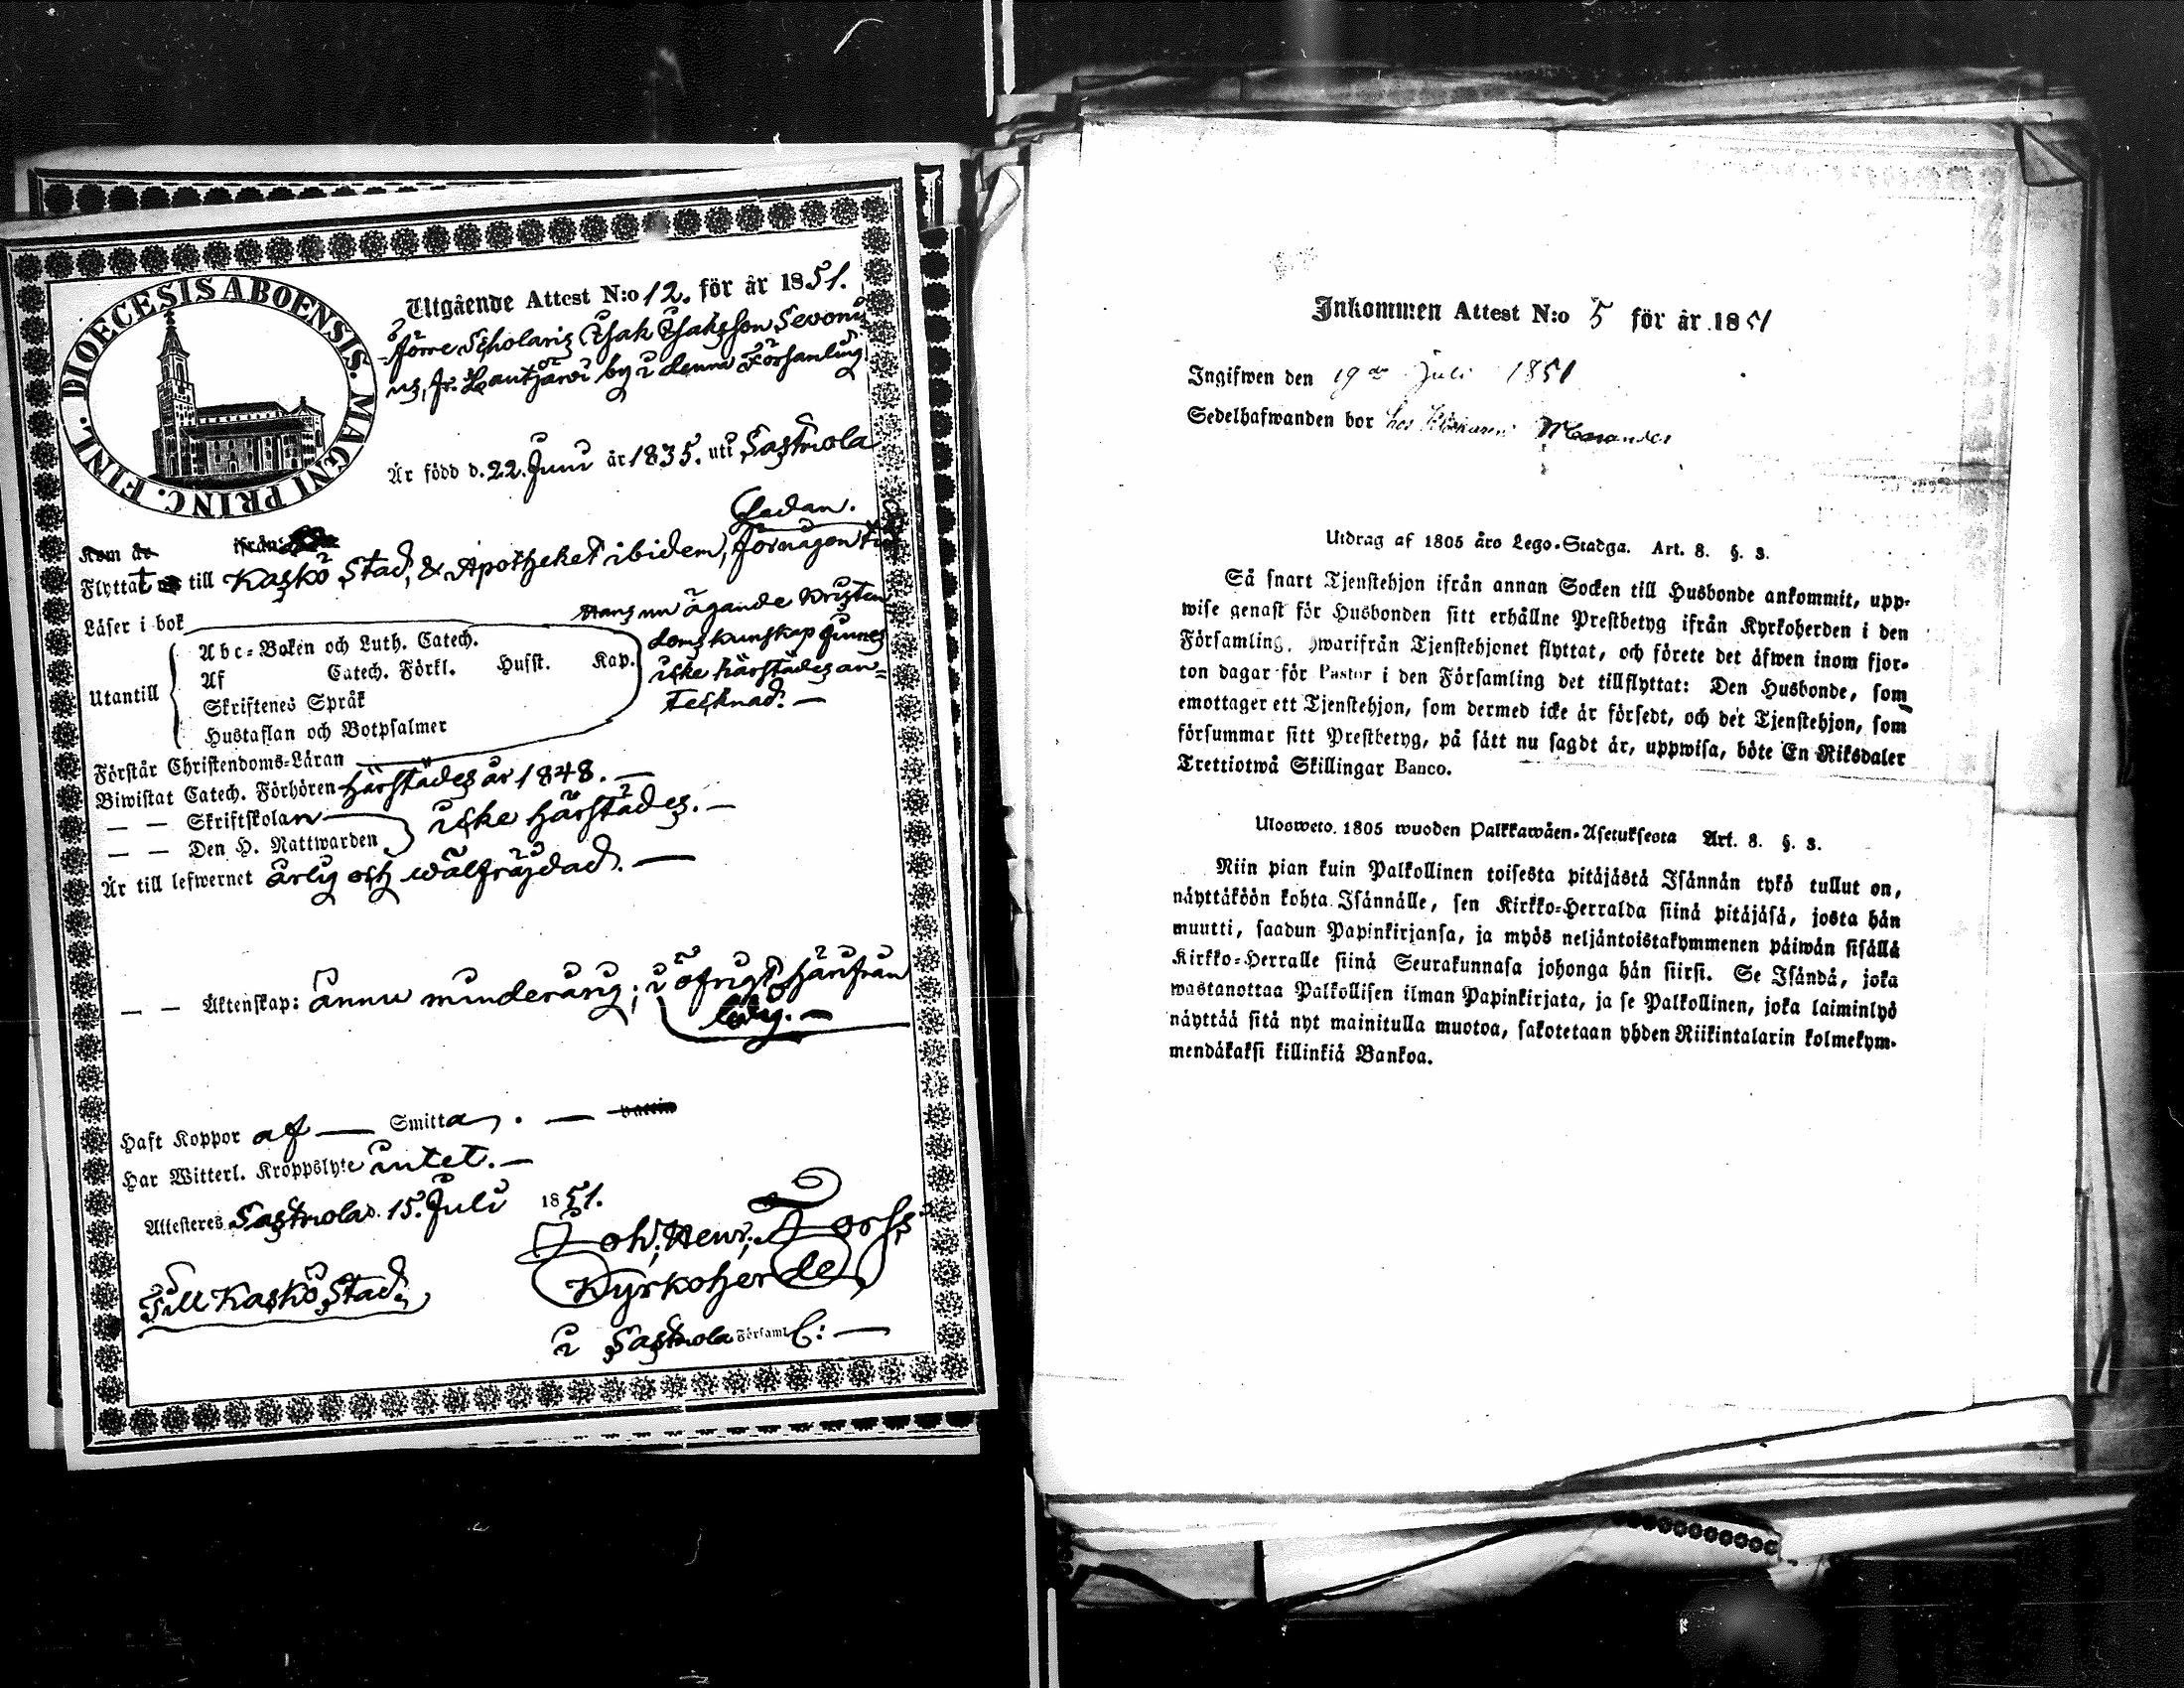 DIOECESIS ABOENSIS. MAGNI PRINC. FINL.
Utgående Attest N:o 12. för år 1851.
Förre Scholaris Isak Isaksson Sevoni
us, fr. Lautjärvi by i denna Församling
Är född d. 22. Juni år 1835. uti Sastmola
sedan.
Kom år ifrån
Flyttat till Kaskö Stad, & Apotheket ibidem, för någon tid
Läser i bok
Hans nu ägande Kristen
doms kunskap finnes
icke härstädes an=
tecknad. —
Utantill
Abc-Boken och Luth. Catech.
Af Catech. Förkl. Husst. Kap.
Skriftenes Språk
Hustaflan och Botpsalmer
Förstår Christendoms-Läran
Biwistat Catech. Förhören härstädes år 1848. —
— — Skriftskolan
— — Den H. Nattwarden
icke härstädes. —
Är till lefwernet ärlig och wälfräjdad. —
— — Äktenskap: ännu minderårig; i öfrigt härifrån
ledig. —
Haft Koppor af — Smitta, . — vaccin
Har Witterl. Kroppslyte intet. —
Attesteres Sastmola d. 15. Juli 1851.
Joh. Henr. Forss
Kyrkoherde
i Sastmola Församl.
Till Kaskö Stad.
Inkommen Attest N:o 5 för år 1851
Ingifwen den 19de Juli 1851
Sedelhafwanden bor hos
Utdrag af 1805 års Lego-Stadga. Art. 8. §. 3.
Så snart Tjenstehjon ifrån annan Socken till Husbonde ankommit, upp-
wise genast för Husbonden sitt erhållne Prestbetyg ifrån Kyrkoherden i den
Församling, hwarifrån Tjenstehjonet flyttat, och förete det äfwen inom fjor-
ton dagar för Pastor i den Församling det tillflyttat: Den Husbonde, som
emottager ett Tjenstehjon, som dermed icke är försedt, och det Tjenstehjon, som
försummar sitt Prestbetyg, på sätt nu sagdt är, uppwisa, böte En Riksdaler
Trettiotwå Skillingar Banco.
Ulosweto. 1805 wuoden Palkkawäen-Asetuksesta Art. 8. §. 3.
Niin pian kuin Palkollinen toisesta pitäjästä Isännän tykö tullut on,
näyttäköön kohta Isännälle, sen Kirkko-Herralda siinä pitäjäsä, josta hän
muutti, saadun Papinkirjansa, ja myös neljäntoistakymmenen päiwän sisällä
Kirkko-Herralle siinä Seurakunnasa johonga hän siirsi. Se Isändä, joka
wastanottaa Palkollisen ilman Papinkirjata, ja se Palkollinen, joka laiminlyö
näyttää sitä nyt mainitulla muotoa, sakotetaan yhden Riikintalarin kolmekym-
mendäkaksi killinkiä Bankoa.